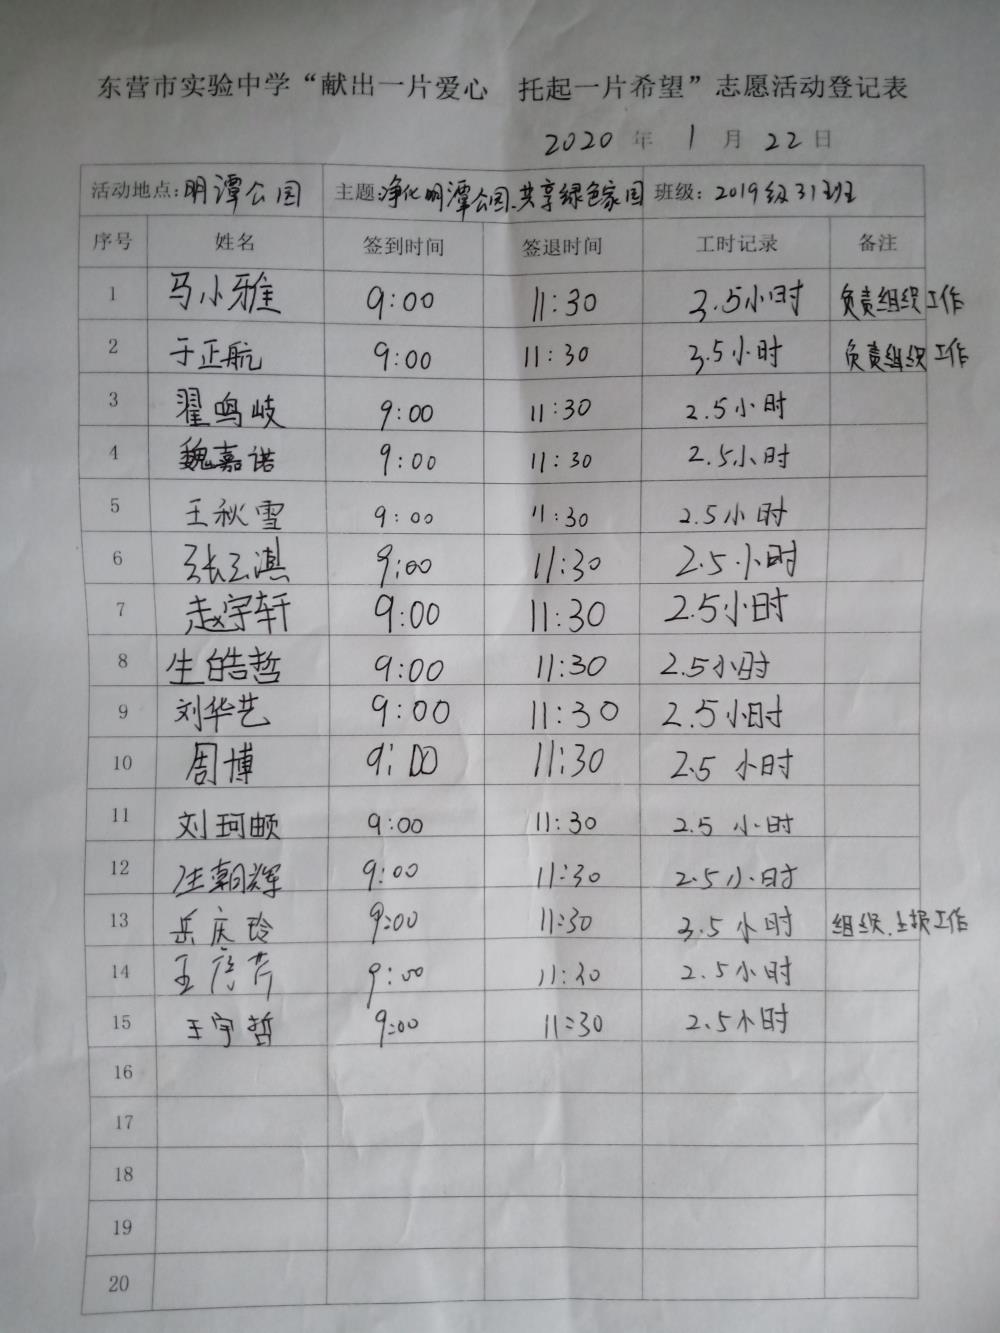 东营市实验中学“献出一片爱心 托起一片希望”志愿活动登记表
2020 年 1 月 22 日
活动地点:明潭公园 主题:净化明潭公园、共享绿色家园 班级:2019级31班
序号 姓名 签到时间 签退时间 工时记录 备注
1 马小雅 9:00 11:30 3.5小时 负责组织工作
2 于正航 9:00 11:30 3.5小时 负责组织工作
3 翟鸣岐 9:00 11:30 2.5小时
4 魏嘉诺 9:00 11:30 2.5小时
5 王秋雪 9:00 11:30 2.5小时
6 张玉淇 9:00 11:30 2.5小时
7 赵宇轩 9:00 11:30 2.5小时
8 生皓哲 9:00 11:30 2.5小时
9 刘华艺 9:00 11:30 2.5小时
10 周博 9:00 11:30 2.5小时
11 刘珂 9:00 11:30 2.5小时
12 朝辉 9:00 11:30 2.5小时
13 岳庆玲 9:00 11:30 3.5小时 组织、上报工作
14 王 9:00 11:30 2.5小时
15 王宇哲 9:00 11:30 2.5小时
16
17
18
19
20